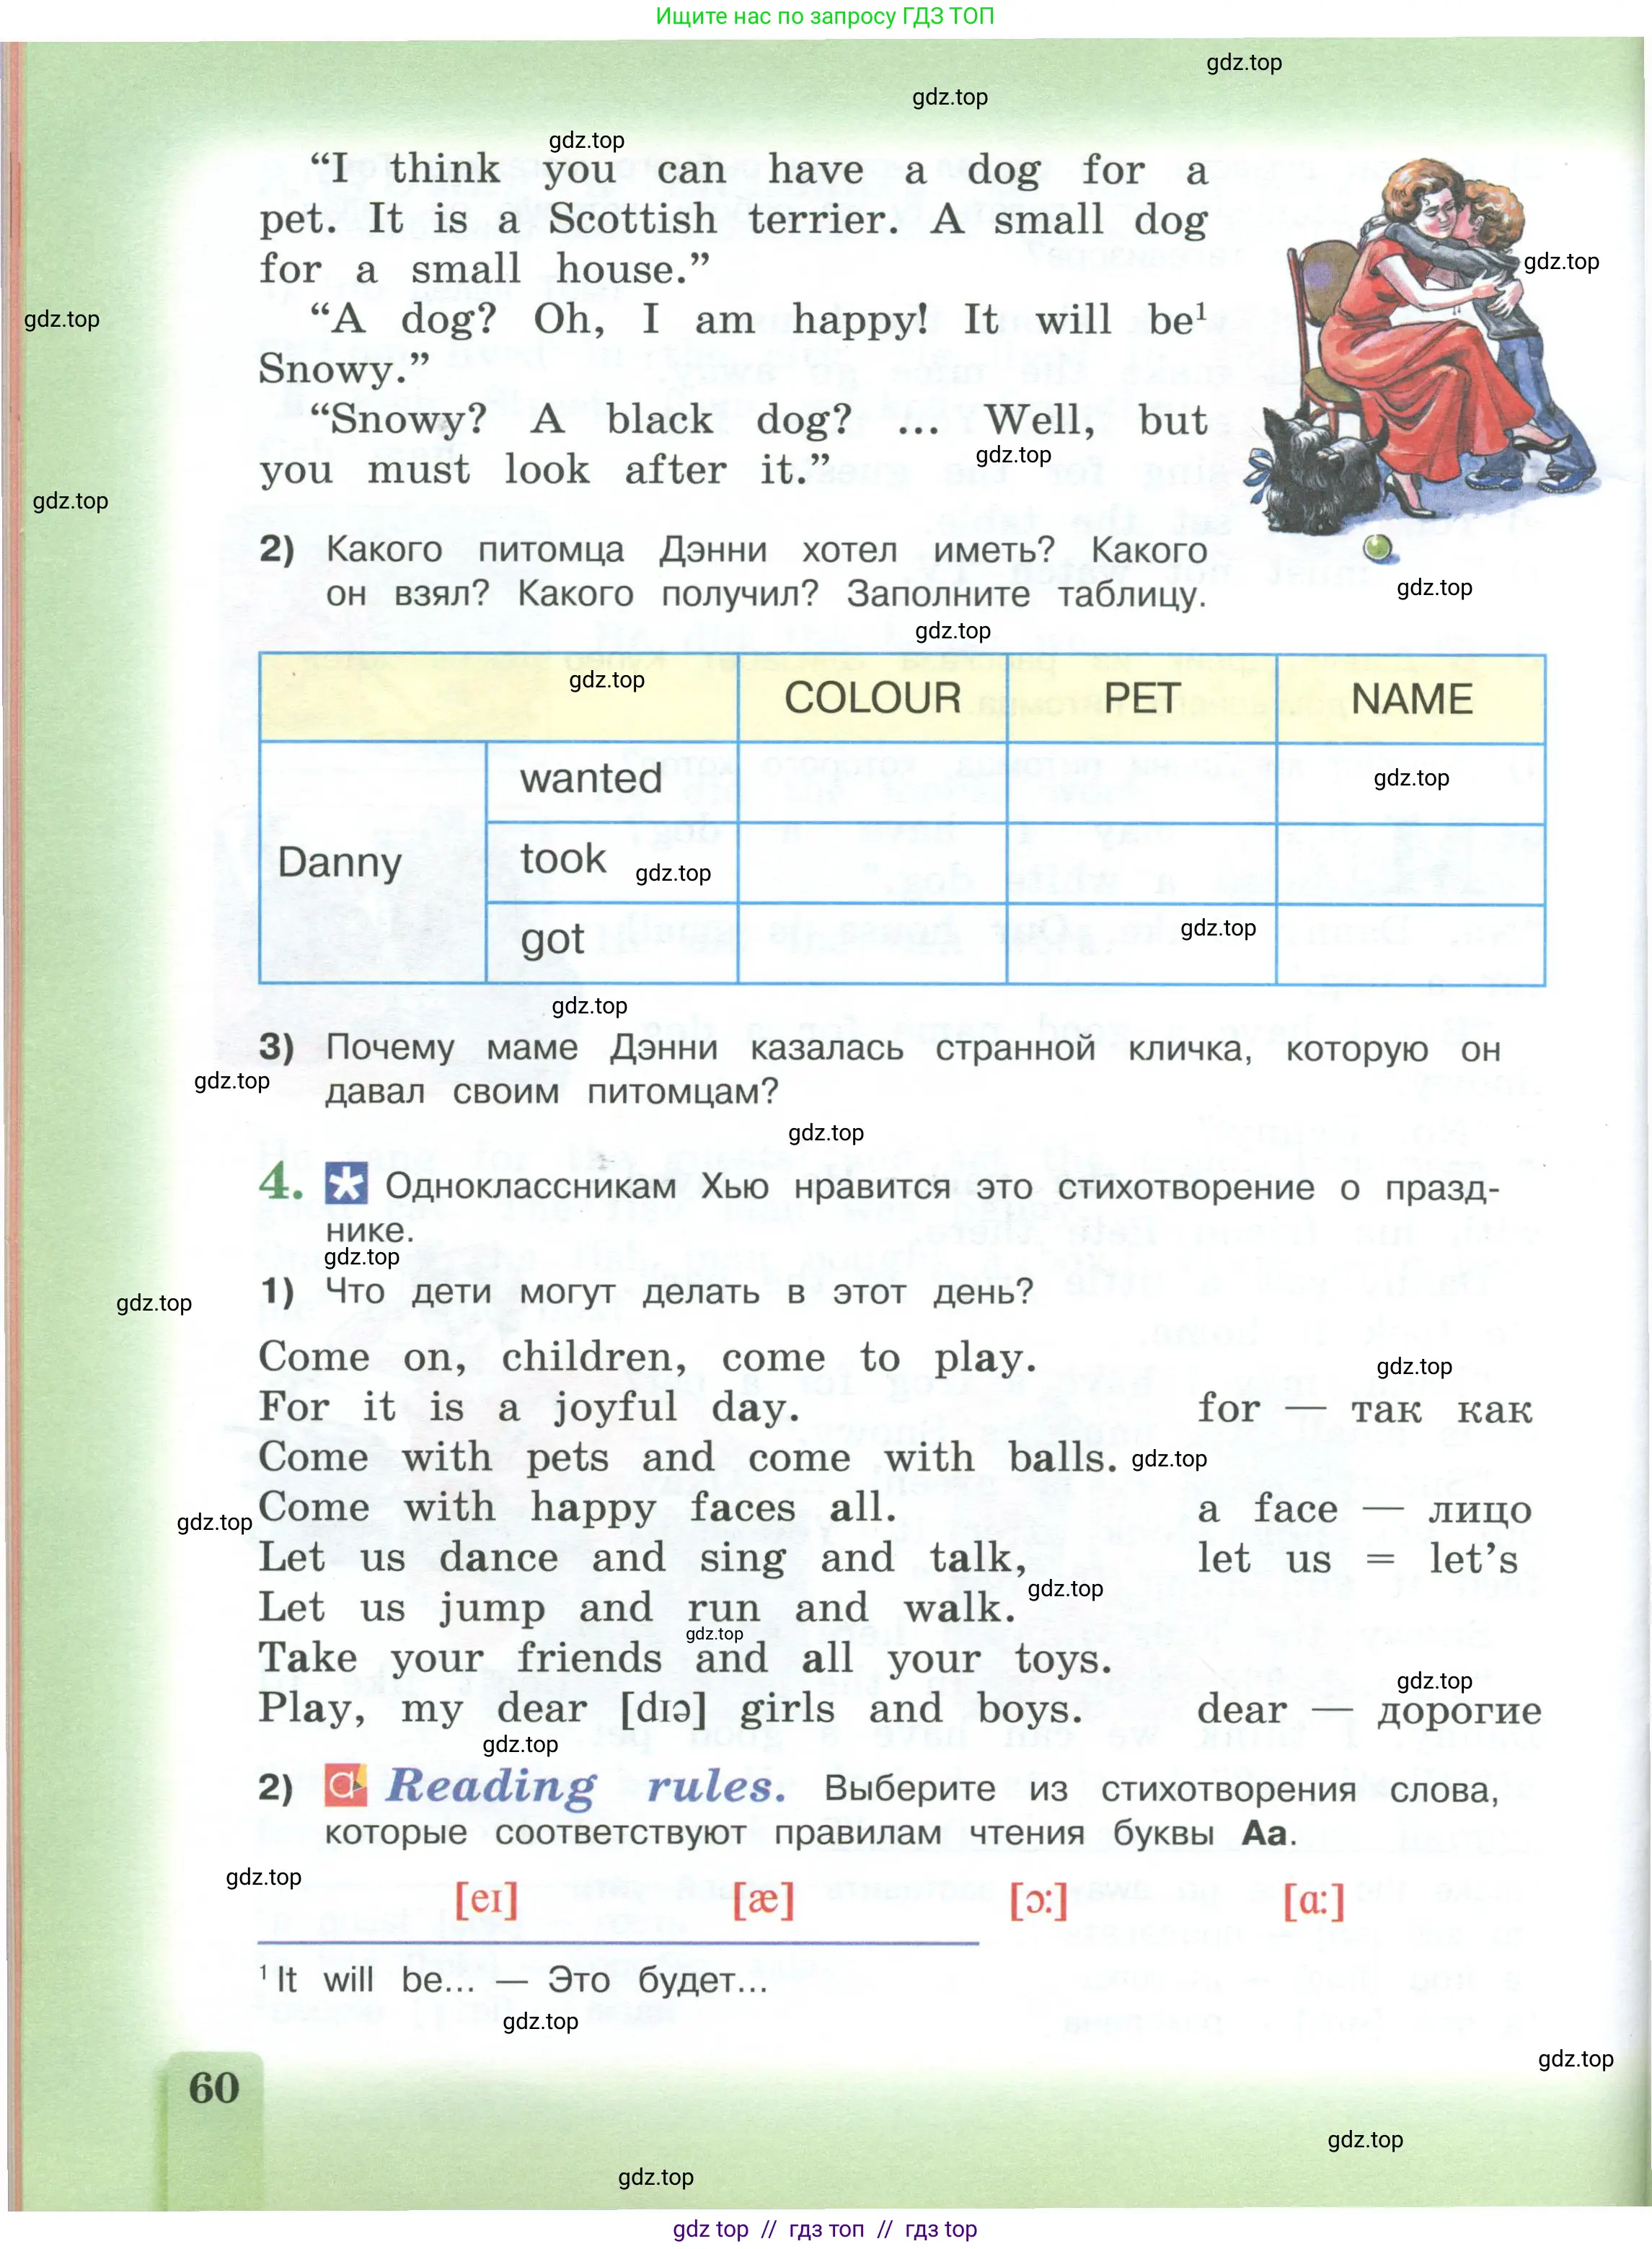 Ищите нас по запросу ГДЗ ТОП
gdz.top
gdz.top
gdz.top
“I think you can have a dog for a
pet. It is a Scottish terrier. A small dog
for a small house.”
gdz.top
gdz.top
“A dog? Oh, I am happy! It will be¹
Snowy.”
“Snowy? A black dog? ... Well, but
gdz.top
you must look after it.”
gdz.top
2) Какого питомца Дэнни хотел иметь? Какого
он взял? Какого получил? Заполните таблицу.
gdz.top
gdz.top
gdz.top
COLOUR PET NAME
wanted
gdz.top
Danny
took
gdz.top
got
gdz.top
gdz.top
3) Почему маме Дэнни казалась странной кличка, которую он
давал своим питомцам?
gdz.top
gdz.top
4. * Одноклассникам Хью нравится это стихотворение о празд-
нике.
gdz.top
1) Что дети могут делать в этот день?
gdz.top
Come on, children, come to play.
gdz.top
For it is a joyful day. for — так как
Come with pets and come with balls.
gdz.top
Come with happy faces all. a face — лицо
gdz.top
Let us dance and sing and talk, let us = let’s
gdz.top
Let us jump and run and walk.
gdz.top
Take your friends and all your toys.
gdz.top
Play, my dear [dɪə] girls and boys. dear — дорогие
gdz.top
2) a Reading rules. Выберите из стихотворения слова,
которые соответствуют правилам чтения буквы Aa.
gdz.top
[eɪ] [æ] [ɔ:] [ɑ:]
¹ It will be... — Это будет...
gdz.top
gdz.top
60
gdz.top
gdz.top
gdz top // гдз топ // гдз top